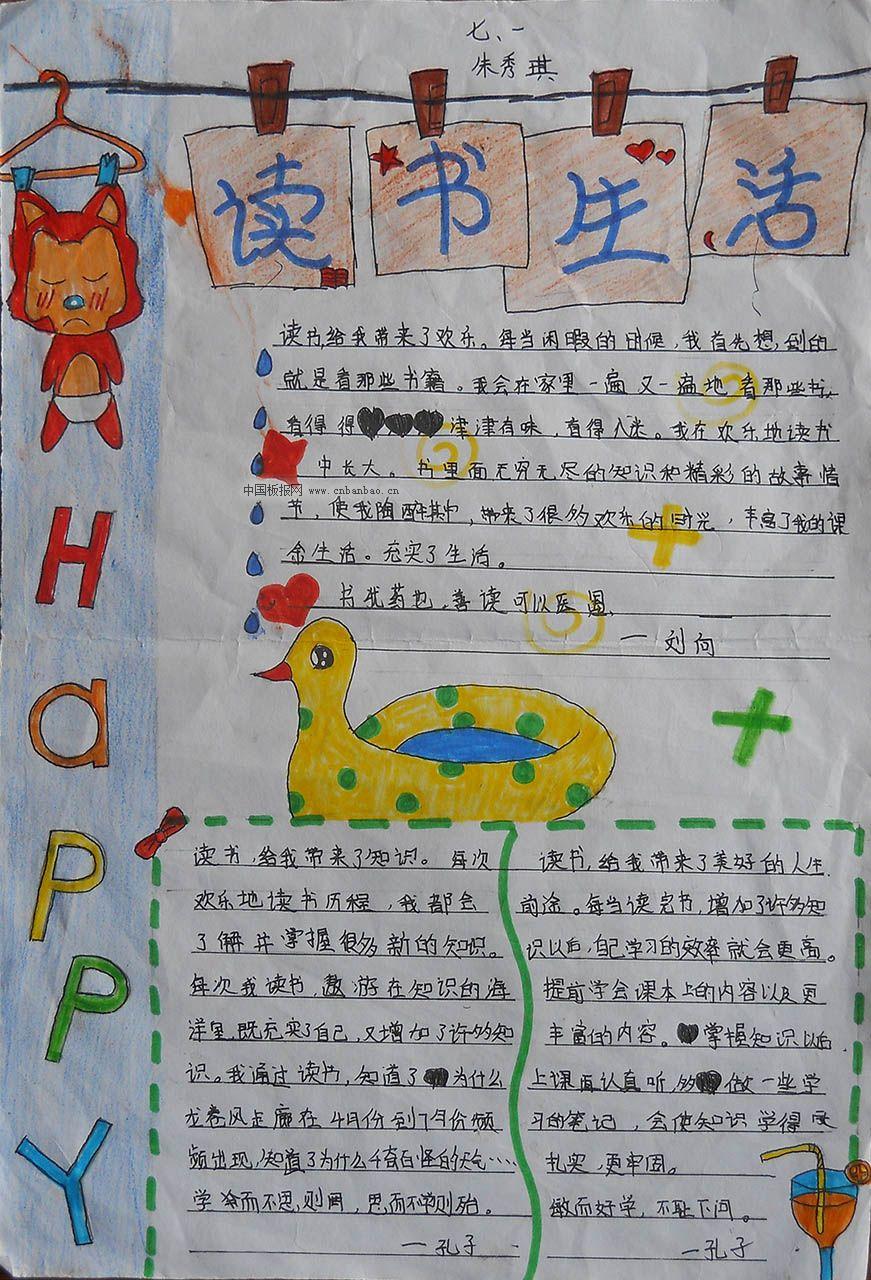 七、一
朱秀琪
读书生活
HaPPY
读书,给我带来了欢乐。每当闲暇的时候,我首先想,到的
就是看那些书籍。我会在家里一遍又一遍地看那些书,
看得得津津有味,看得入迷。我在欢乐地读书
中长大。书里面无穷无尽的知识和精彩的故事情
节,使我陶醉其中,带来了很多欢乐的时光,丰富了我的课
余生活。充实了生活。
中国板报网 www.cnbanbao.cn
书犹药也,善读可以医愚、
一刘向
读书,给我带来了知识。每次
欢乐地读书历程,我都会
了解并掌握很多新的知识。
每次我读书,遨游在知识的海
洋里,既充实了自己,又增加了许多知
识。我通过读书,知道了为什么
龙卷风走廊在4月份到7月份频
频出现,知道了为什么千奇百怪的天气……
学而不思,则罔,思而不学则殆。
一孔子
读书,给我带来了美好的人生
前途。每当读完书,增加了许多知
识以后,自己学习的效率就会更高。
提前学会课本上的内容以及更
丰富的内容。掌握知识以后
上课认真听,多做一些学
习的笔记,会使知识学得更
扎实,更牢固。
敏而好学,不耻下问。
一孔子